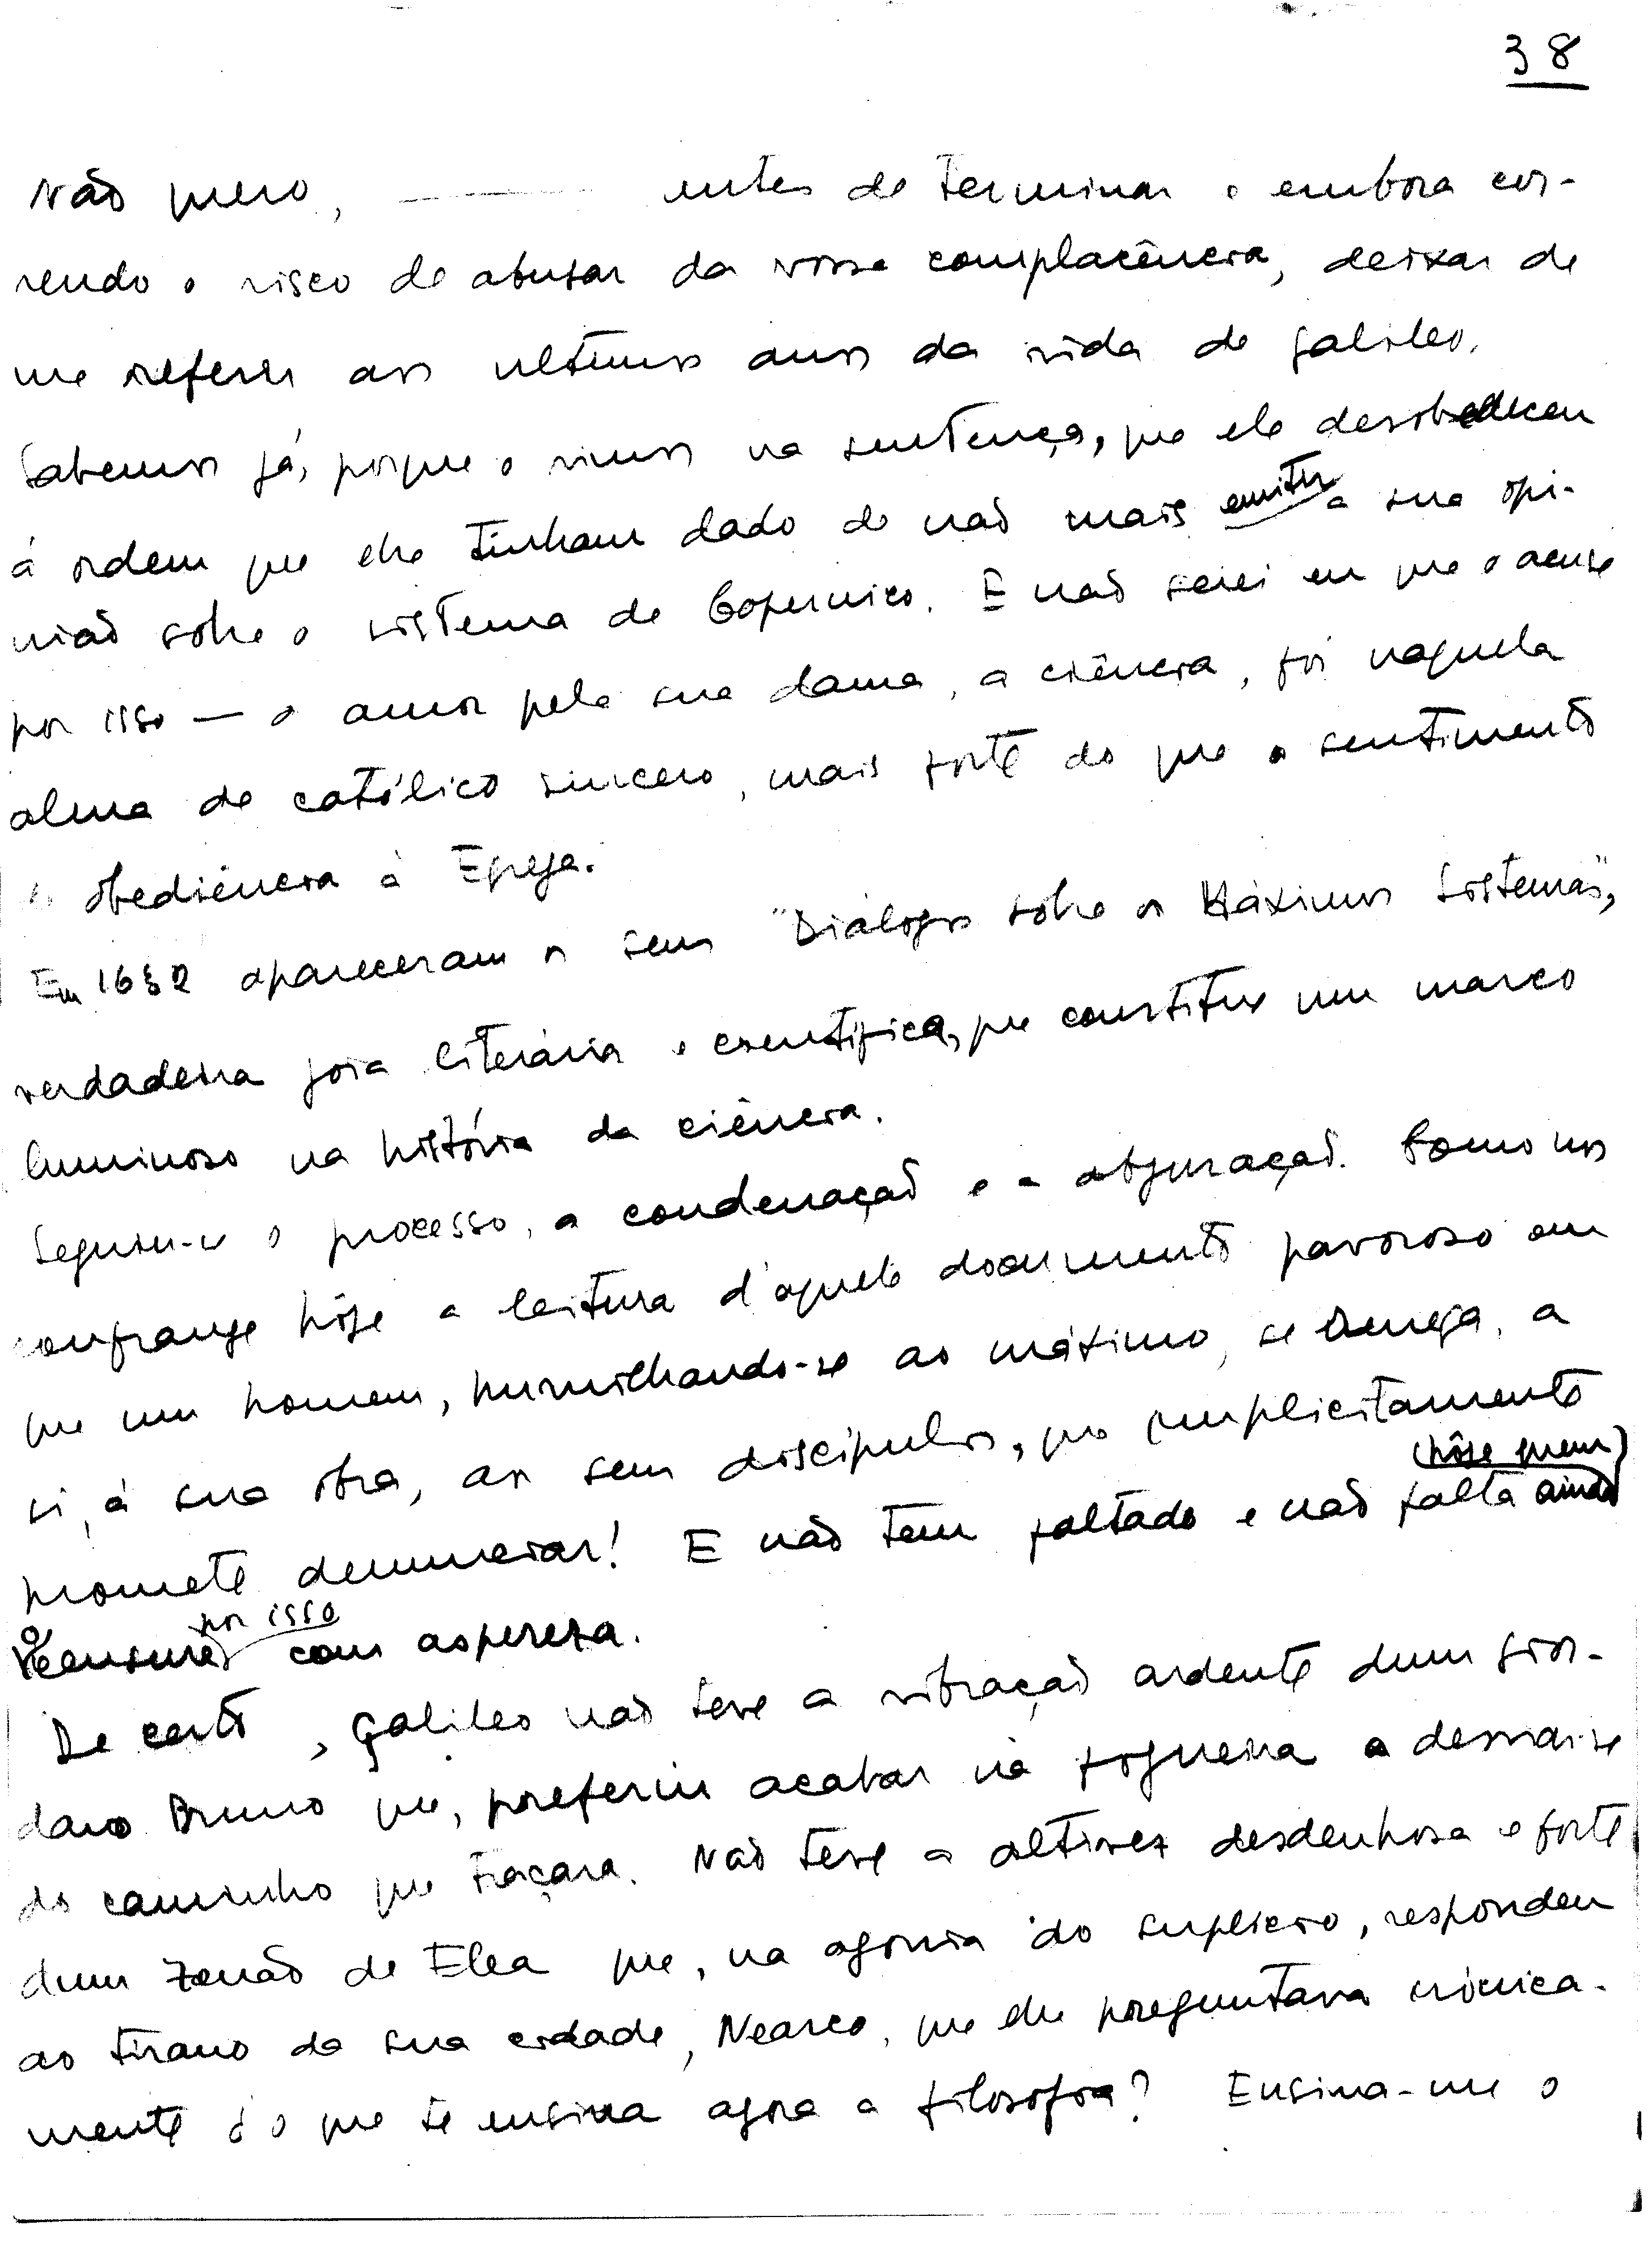 38
Não quero, antes de terminar e embora cor-
rendo o risco de abusar da vossa complacência, deixar de
me referir aos ultimos anos da vida de Galileo.
Sabemos já, porque o vimos na sentença, que ele desobedeceu
á ordem que lhe tinham dado de não mais emitir a sua opi-
nião sobre o sistema de Copernico. E não serei eu que o acuse
por isso — o amor pela sua dama, a ciência, foi naquela
alma de católico sincero, mais forte do que o sentimento
de obediência à Egreja.
Em 1632 apareceram os seus "Diálogos sobre os Máximos Sistemas",
verdadeira joia literária e cientifica, que constitue um marco
luminoso na história da ciência.
Seguiu-se o processo, a condenação e a abjuração. Como nos
confrange hôje a leitura d'aquele documento pavoroso em
que um homem, humilhando-se ao máximo, se renega, a
si, á sua obra, aos seus discipulos, que implicitamente
promete denunciar! E não tem faltado e não falta ainda
(hôje quem)
o censure por isso com aspereza.
De certo, Galileo não teve a vibração ardente dum Gior-
dano Bruno que, preferiu acabar na fogueira a desviar-se
do caminho que traçara. Não teve a altivez desdenhosa e forte
dum Zenão de Elea que, na agonia do suplicio, respondeu
ao tirano da sua cidade, Nearco, que lhe preguntava irónica-
mente ¿o que te ensina agora a filosofia? Ensina-me o